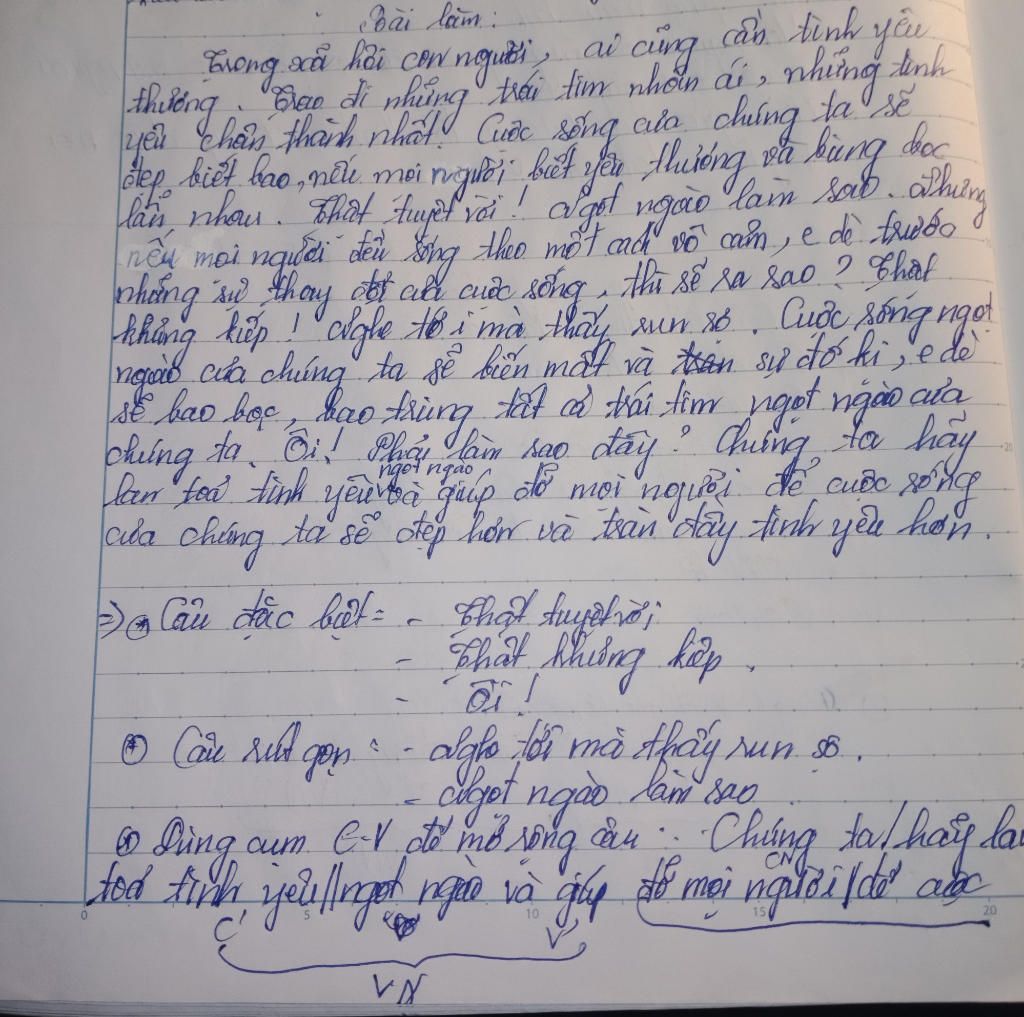 Bài làm:
Trong xã hội con người, ai cũng cần tình yêu
thương. Trao đi những trái tim nhân ái, những tình
yêu chân thành nhất. Cuộc sống của chúng ta sẽ
đẹp biết bao, nếu mọi người biết yêu thương và bùng bọc
lẫn nhau. Thật tuyệt vời! Ngọt ngào làm sao. Nhưng
nếu mọi người đều sống theo một cách vô cảm, e dè trước
những sự thay đổi của cuộc sống, thì sẽ ra sao? Thật
khủng kiếp! Nghe tới mà thấy run sợ. Cuộc sống ngọt
ngào của chúng ta sẽ biến mất và sự đố kị, e dè
sẽ bao bọc, bao trùng tất cả trái tim ngọt ngào của
chúng ta. Ôi! Phải làm sao đây? Chúng ta hãy
lan toả tình yêu ngọt ngào và giúp đỡ mọi người để cuộc sống
của chúng ta sẽ đẹp hơn và tràn đầy tình yêu hơn.
=> * Câu đặc biệt: - Thật tuyệt vời
- Thật khủng kiếp.
- Ôi!
* Câu rút gọn: - Nghe tới mà thấy run sợ.
- Ngọt ngào làm sao
* Dùng cụm C-V để mở rộng câu: Chúng ta/ hãy la
CN
toả tình yêu//ngọt ngào và giúp đỡ mọi người/để cuộc
0 5 10 15 20
C' V'
VN